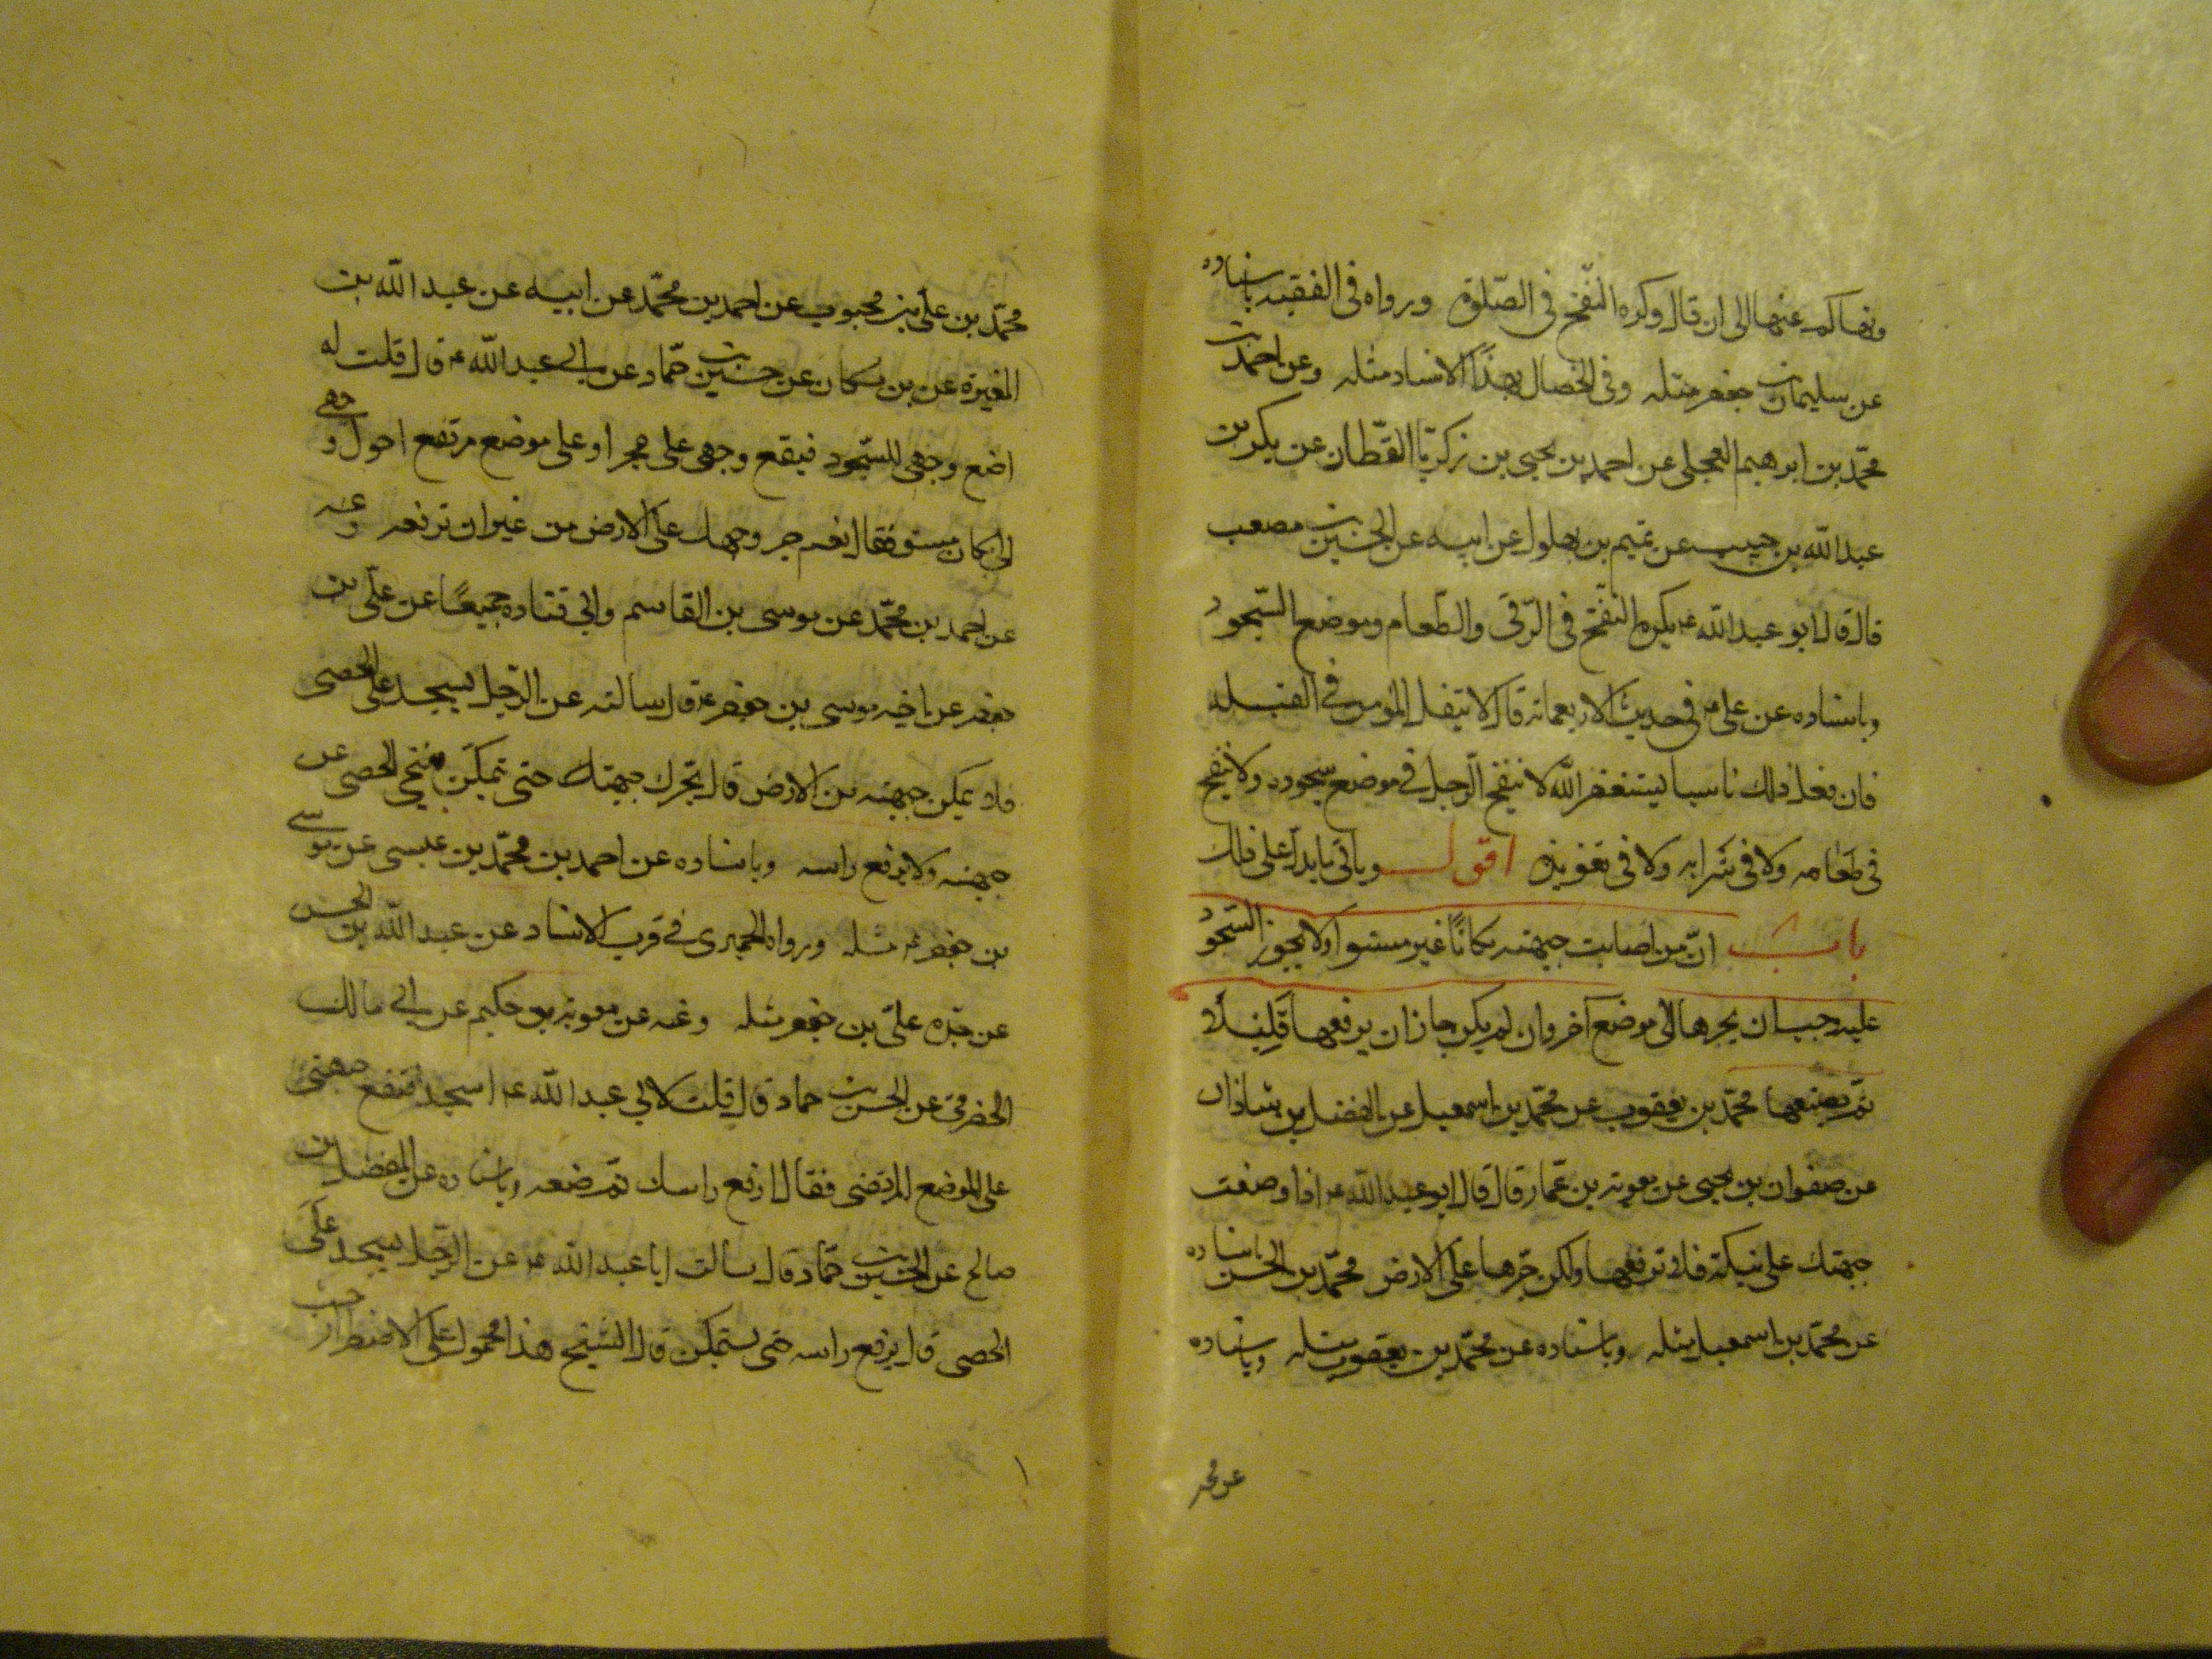 ونهاكم عنها الى ان قال وكره النفخ فى الصلوة ورواه فى الفقيه باسناده
عن سليمان بن جعفر مثله وفى الخصال بهذا الاسناد مثله وعن احمد بن
محمّد بن ابرهيم العجلى عن احمد بن يحيى بن زكريّا القطّان عن بكر بن
عبد اللّه بن حبيب عن تميم بن بهلول عن ابيه عن الحسين بن مصعب
قال قال ابو عبد اللّه ع يكره النّفخ فى الرّقى والطّعام وموضع السّجود
وباسناده عن على ع فى حديث الاربعمائة قال لا يتفل المؤمن فى القبله
فان فعل ذلك ناسيا ليستغفر اللّه لا ينفخ الرّجل فى موضع سجوده ولا ينفخ
فى طعامه ولا فى شرابه ولا فى تعويذه اقول وياتى ما يدل على ذلك
باب انّ من اصابت جبهته مكانًا غير مستو او لا يجوز السّجود
عليه وجب ان يجرها الى موضع آخر وان لم يكن جاز ان يرفعها قليلًا
ثم يضعها محمّد بن يعقوب عن محمّد بن اسمعيل عن الفضل بن شاذان
عن صفوان بن يحيى عن معوية بن عمّار قال قال ابو عبد اللّه ع اذا وضعت
جبهتك على نبكة فلا ترفعها ولكن جرّها على الارض محمّد بن الحسن باسناده
عن محمّد بن اسمعيل مثله وباسناده عن محمّد بن يعقوب مثله وباسناده
عن محمد
محمّد بن على بن محبوب عن احمد بن محمّد عن ابيه عن عبد اللّه بن
المغيرة عن بن مسكان عن حسين بن حمّاد عن ابى عبد اللّه ع قال قلت له
اضع وجهى للسّجود فيقع وجهى على حجر او على موضع مرتفع احول وجهى
الى مكان مستو فقال نعم جر وجهك على الارض من غير ان ترفعه وعنه
عن احمد بن محمّد عن موسى بن القاسم وابى قتاده جميعًا عن علّى بن
جعفر عن اخيه موسى بن جعفر ع قال سالته عن الرّجل يسجد على الحصى
فلا يمكن جبهته من الارض قال يحرك جبهته حتى يتمكّن فينحى الحصى عن
جبهته ولا يرفع راسه وباسناده عن احمد بن محمّد بن عيسى عن موسى
بن جعفر ع مثله ورواه الحميرى فى قرب الاسناد عن عبد اللّه بن الحسن
عن جدّه علىّ بن جعفر مثله وعنه عن معوية بن حكيم عن ابى مالك
الحضرمى عن الحسن بن حماد قال قلت لابى عبد اللّه ع اسجد فتقع جبهتى
على الموضع المرتفع فقال ارفع راسك ثم ضعه وباسناده عن المفضل بن
صالح عن الحسين بن حمّاد قال سالت ابا عبد اللّه ع عن الرّجل يسجد على
الحصى قال يرفع راسه حتى يستمكن قال الشّيخ هذا محمول على الاضطرار حيث